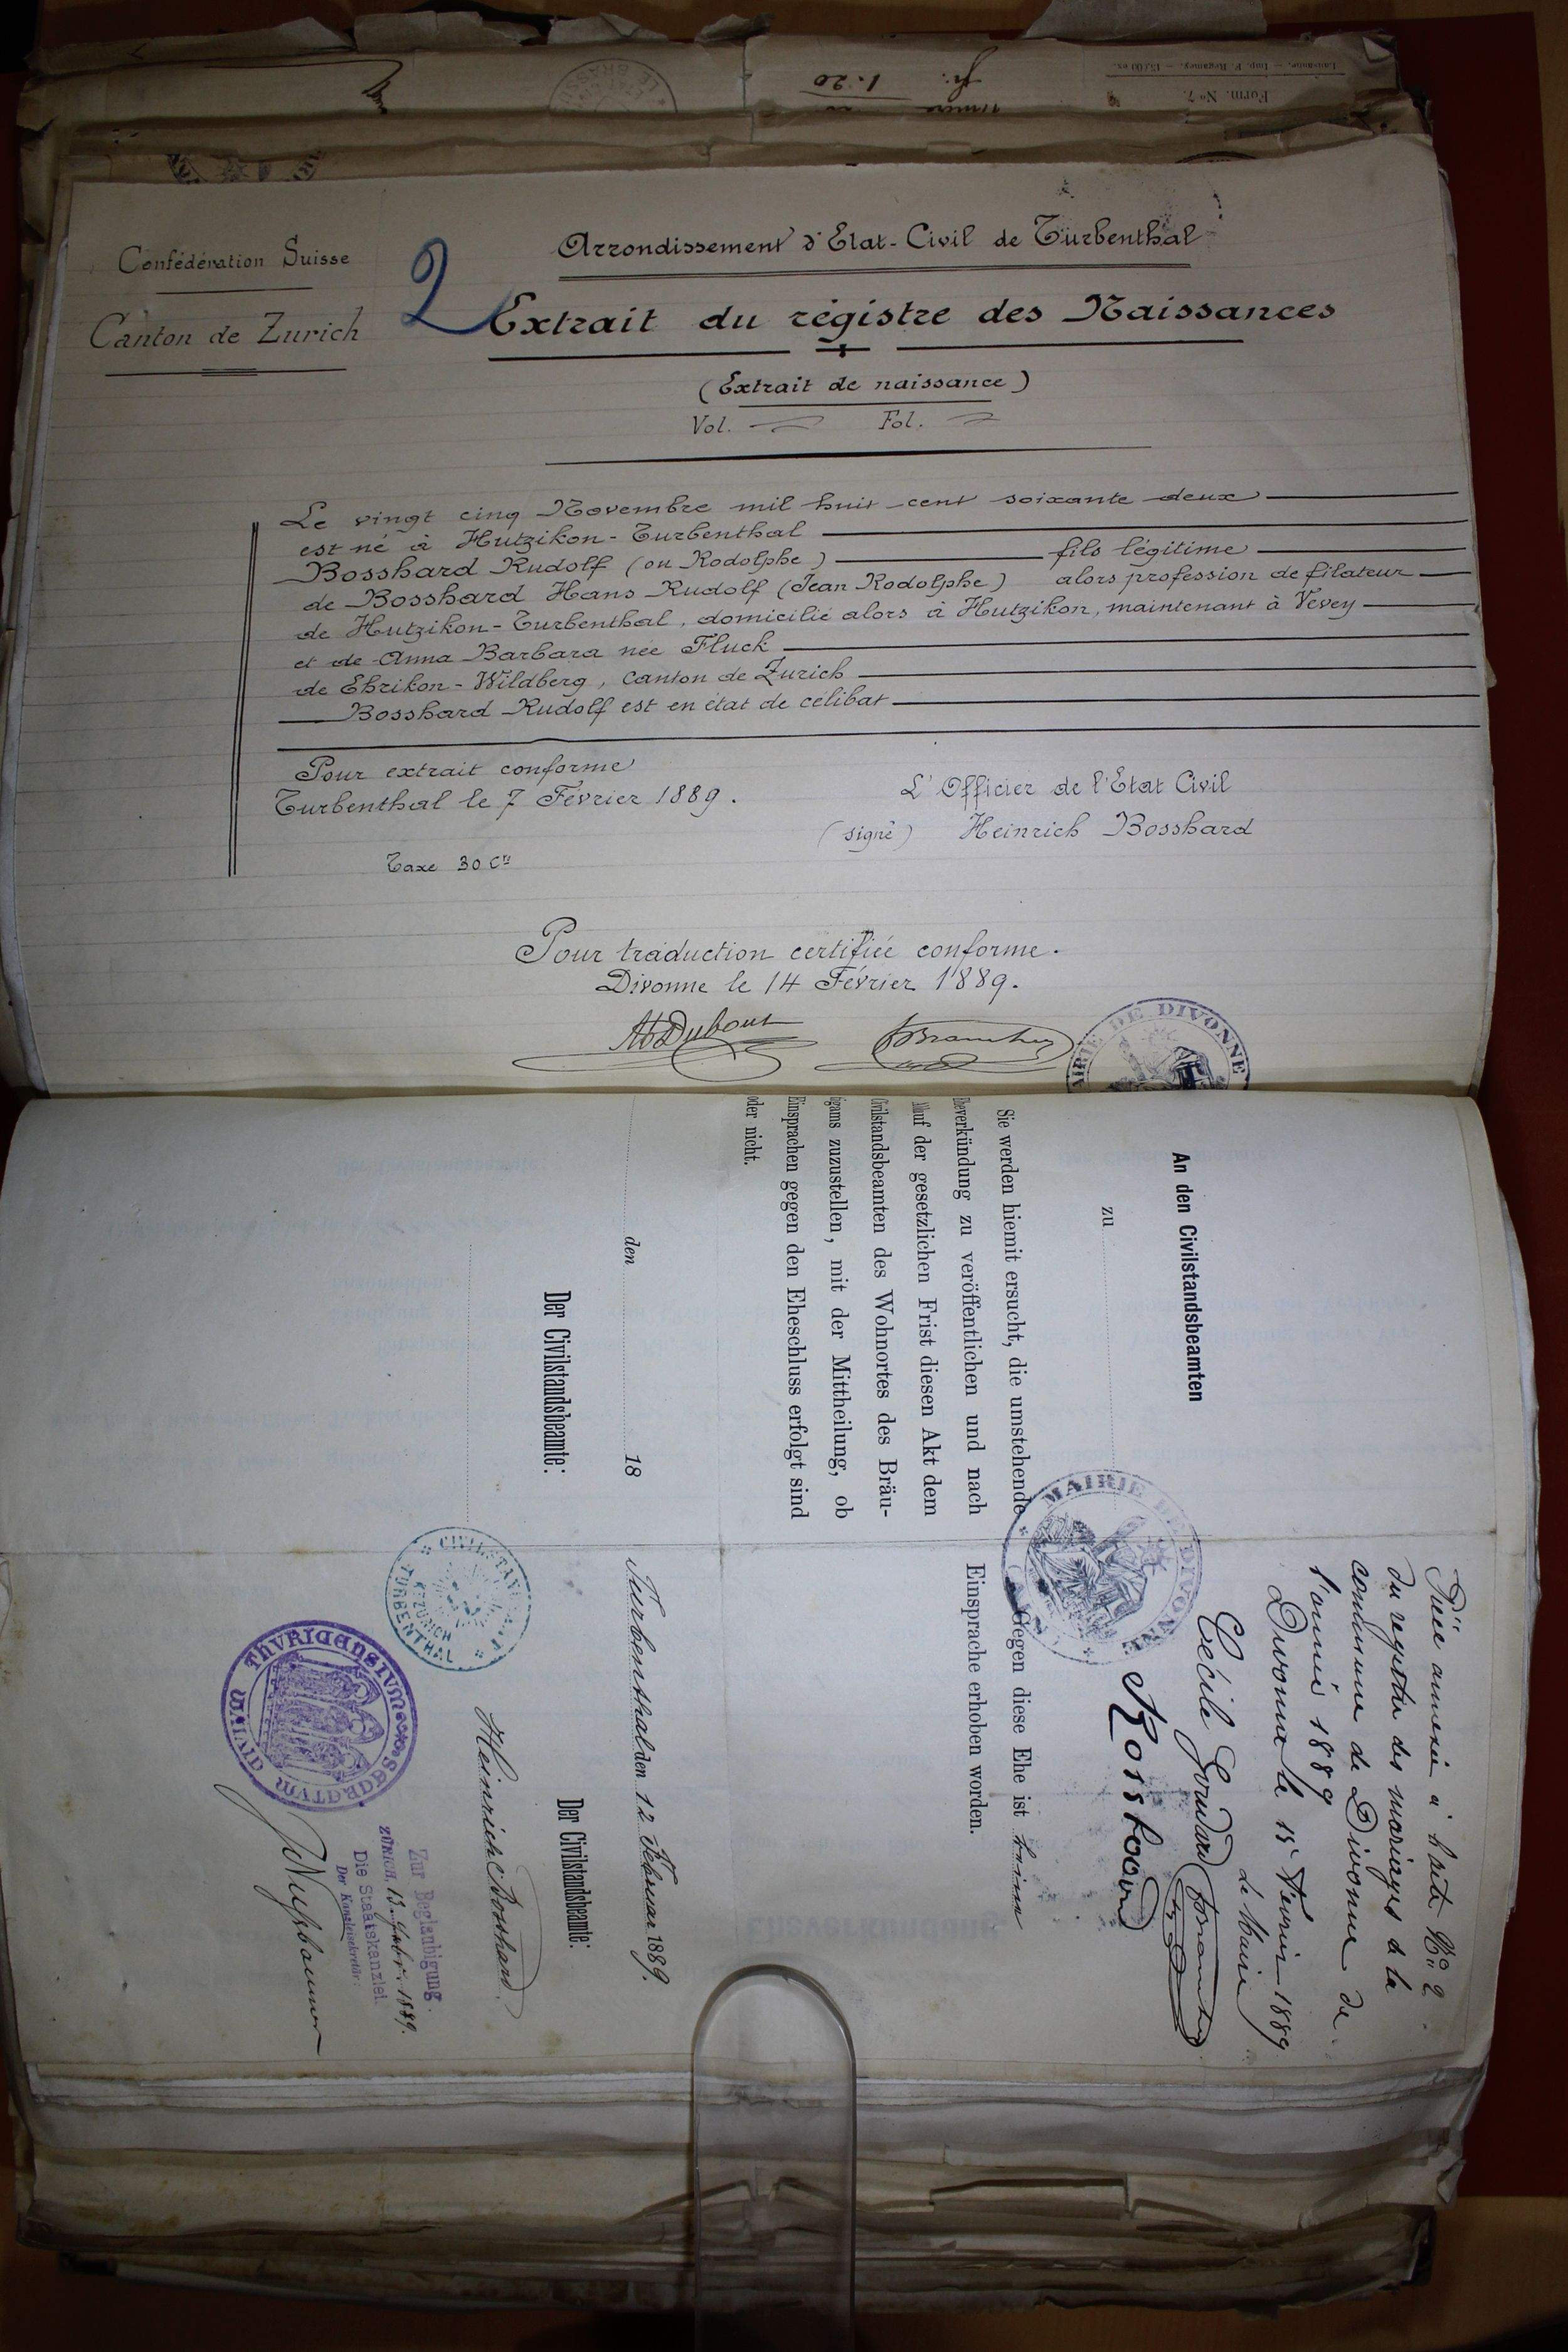 Form. No 7.
Lausanne. — Imp. F. Regamey. — 15,000 ex.
fr. 1.20
Confédération Suisse
Canton de Zurich
2
Arrondissement d'Etat-Civil de Turbenthal
Extrait du régistre des Naissances
(Extrait de naissance)
Vol. Fol.
Le vingt cinq Novembre mil huit cent soixante deux
est né à Hutzikon-Turbenthal
Bosshard Rudolf (ou Rodolphe) fils légitime
de Bosshard Hans Rudolf (Jean Rodolphe) alors profession de filateur
de Hutzikon-Turbenthal, domicilié alors à Hutzikon, maintenant à Vevey
et de Anna Barbara née Fluck
de Ehrikon-Wildberg, canton de Zurich
Bosshard Rudolf est en état de célibat
Pour extrait conforme
Turbenthal le 7 Février 1889.
L'Officier de l'Etat Civil
(signé) Heinrich Bosshard
Taxe 30 Cts
Pour traduction certifiée conforme.
Divonne le 14 Février 1889.
MAIRIE DE DIVONNE
An den Civilstandsbeamten
zu
Sie werden hiemit ersucht, die umstehende
Eheverkündung zu veröffentlichen und nach
Ablauf der gesetzlichen Frist diesen Akt dem
Civilstandsbeamten des Wohnortes des Bräu-
tigams zuzustellen, mit der Mittheilung, ob
Einsprachen gegen den Eheschluss erfolgt sind
oder nicht.
den 18
Der Civilstandsbeamte:
Pièce annexée à l'acte No 2
du registre des mariages de la
commune de Divonne de
l'année 1889
Divonne le 15 Février 1889
Le Maire
Cécile
MAIRIE DE DIVONNE
Gegen diese Ehe ist keine
Einsprache erhoben worden.
Turbenthal den 12. Februar 1889.
Der Civilstandsbeamte:
Heinrich Bosshard.
CIVILSTANDSAMT
KT. ZÜRICH
TURBENTHAL
Zur Beglaubigung.
ZÜRICH, 13. Febr. 1889.
Die Staatskanzlei.
Der Kanzleisekretär: